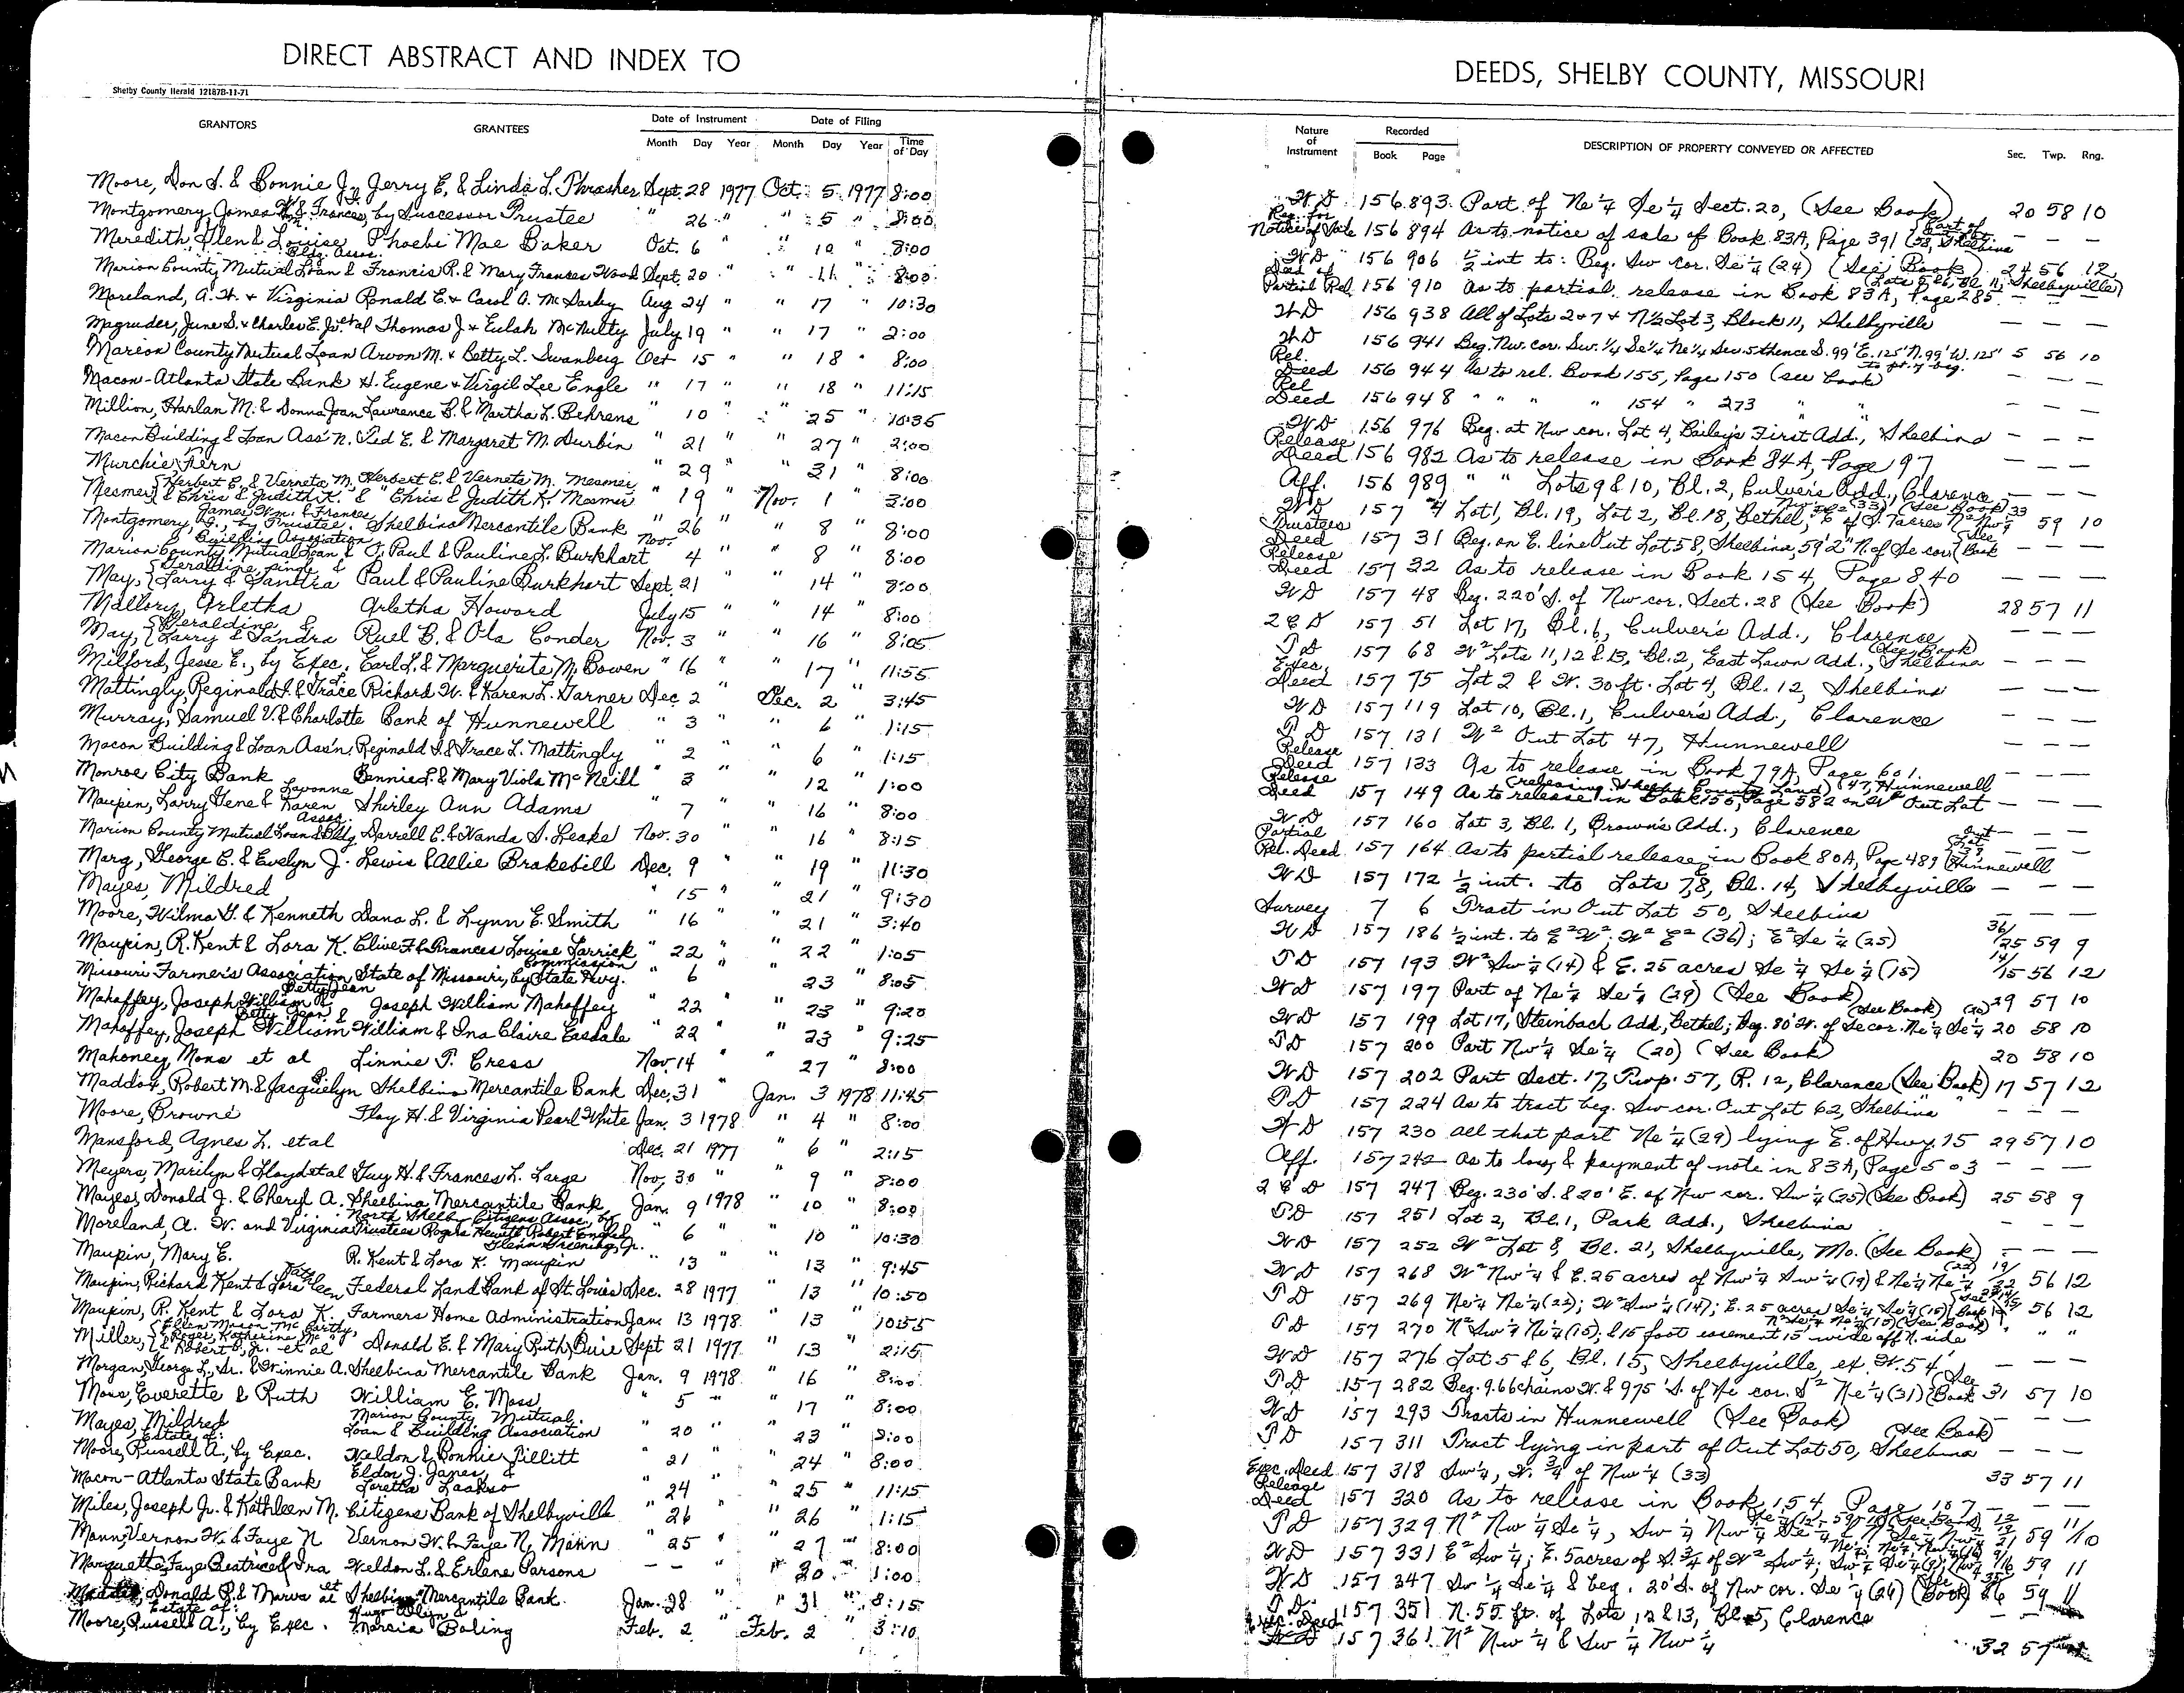 DIRECT ABSTRACT AND INDEX TO
Shelby County Herald 12187B-11-71
GRANTORS GRANTEES Date of Instrument Date of Filing
Month Day Year Month Day Year Time of Day
Moore, Don S. & Bonnie J. Jerry E. & Linda L. Thrasher Sept. 28 1977 Oct. 5 1977 8:00
Montgomery, James Wm. & Frances, by Successor Trustee " 26 " " 5 " 8:00
Meredith, Glen & Louise Phoebe Mae Baker Oct. 6 " 10 8:00
Marion County Mutual Loan & Bldg. Assoc. Francis R. & Mary Frances Wood Sept. 20 " " 11 " 8:00
Moreland, A. W. & Virginia Ronald E. & Carol A. McDarby Aug 24 " " 17 " 10:30
Magruder, June S. & Charles E. Jr. et al Thomas J & Eulah McNulty July 19 " " 17 " 2:00
Marion County Mutual Loan Arvon M. & Betty L. Swanberg Oct 15 " " 18 " 8:00
Macon-Atlanta State Bank H. Eugene & Virgil Lee Engle " 17 " " 18 " 11:15
Million, Harlan M. & Donna Joan Lawrence B. & Martha L. Behrens " 10 " 25 " 10:35
Macon Building & Loan Ass'n. Ted E. & Margaret M. Durbin " 21 " " 27 " 2:00
Murchie, Fern " 29 " " 31 " 8:00
Mesmer, {Herbert E. & Verneta M. & Chris & Judith K. Herbert E. & Verneta M. Mesmer & Chris & Judith K. Mesmer " 19 " Nov. 1 " 3:00
Montgomery, James Wm. & Frances G., by Trustee. Shelbina Mercantile Bank " 26 " " 8 " 8:00
Marion County Mutual Loan & Building Association J. Paul & Pauline L. Burkhart Nov. 4 " " 8 " 8:00
May, {Geraldine, single & Larry & Sandra Paul & Pauline Burkhart Sept. 21 " " 14 " 8:00
Mallory, Arletha Arletha Howard July 15 " " 14 " 8:00
May, {Geraldine & Larry & Sandra Ruel B. & Ola Conder Nov. 3 " " 16 " 8:05
Milford, Jesse E., by Exec. Earl L. & Marguerite M. Bowen " 16 " 17 " 11:55
Mattingly, Reginald I. & Grace L. Richard W. & Karen L. Garner Dec. 2 " Dec. 2 " 3:45
Murray, Samuel V. & Charlotte Bank of Hunnewell " 3 " " 6 " 1:15
Macon Building & Loan Ass'n. Reginald I. & Grace L. Mattingly " 2 " " 6 " 1:15
Monroe City Bank Bennie L. & Mary Viola McNeill " 3 " " 12 " 1:00
Maupin, Larry Gene & Lavonne Karen Shirley Ann Adams " 7 " " 16 " 8:00
Marion County Mutual Loan & Bldg Assoc. Darrell C. & Wanda S. Leake Nov. 30 " " 16 " 8:15
Marg, George E. & Evelyn J. Lewis & Allie Brakebill Dec. 9 " " 19 " 11:30
Mayes, Mildred " 15 " " 21 " 9:30
Moore, Wilma G. & Kenneth Dana L. & Lynn E. Smith " 16 " " 21 " 3:40
Maupin, R. Kent & Lora K. Clive F. & Frances Louise Larrick " 22 " " 22 " 1:05
Missouri Farmer's Association State of Missouri, by State Hwy. Commission " 6 " 23 " 8:05
Mahaffey, Joseph William & Betty Jean Joseph William Mahaffey " 22 " " 23 " 9:20
Mahaffey, Joseph William & Betty Jean William & Ina Claire Easdale " 22 " " 23 " 9:25
Mahoney, Mona et al Linnie T. Cress Nov. 14 " " 27 " 8:00
Maddox, Robert M. & Jacquelyn Shelbina Mercantile Bank Dec. 31 " Jan. 3 1978 11:45
Moore, Browne Floy H. & Virginia Pearl White Jan. 3 1978 " 4 " 8:00
Mansford, Agnes L. et al Dec. 21 1977 " 6 " 2:15
Meyers, Marilyn & Lloyd et al Guy H. & Frances L. Large Nov. 30 " " 9 " 8:00
Mayes, Donald J. & Cheryl A. Shelbina Mercantile Bank Jan. 9 1978 " 10 " 8:00
Moreland, A. W. and Virginia North Shelby Citizens Assoc., by Trustees Rogers Hewitt Robert English Glenn Greening, Jr. " 6 " " 10 " 10:30
Maupin, Mary E. R. Kent & Lora K. Maupin " 13 " " 13 " 9:45
Maupin, Richard Kent & Lora Kathleen Federal Land Bank of St. Louis Dec. 28 1977 " 13 " 10:50
Maupin, R. Kent & Lora K. Farmers Home Administration Jan. 13 1978 " 13 " 10:55
Miller, {Ellen Mason McCarthy, Roger, Katherine Mc & Robert B., Jr. et al Donald E. & Mary Ruth Buie Sept 21 1977 " 13 " 2:15
Morgan, George L., Sr. & Winnie A. Shelbina Mercantile Bank Jan. 9 1978 " 16 " 8:00
Moss, Everette & Ruth William E. Moss " 5 " " 17 " 8:00
Mayes, Mildred Marion County Mutual Loan & Building Association " 20 " " 23 " 9:00
Moore, Russell A., Estate of: by Exec. Weldon & Bonnie Pillitt " 21 " " 24 " 8:00
Macon-Atlanta State Bank Eldon J. James, & Loretta Laakso " 24 " 25 " 11:15
Miles, Joseph Jr. & Kathleen M. Citizens Bank of Shelbyville " 26 " " 26 " 1:15
Mann, Vernon W. & Faye N Vernon W. & Faye N. Mann " 25 " " 27 " 8:00
Marquette, Faye Beatrice & Ira Weldon L. & Erlene Parsons - - " " 30 " 1:00
Donald R. & Marva et al Shelbina Mercantile Bank Jan. 28 " 31 " 8:15
Moore, Russell A., Estate of: by Exec. Marcia Boling Feb. 2 " Feb. 2 " 3:10
DEEDS, SHELBY COUNTY, MISSOURI
Nature of Instrument Recorded Book Page DESCRIPTION OF PROPERTY CONVEYED OR AFFECTED Sec. Twp. Rng.
W.D. 156 893 Part of Ne 1/4 Se 1/4 Sect. 20, (See Book) 20 58 10
Req. for Notice of Sale 156 894 As to notice of sale of Book 83A, Page 391 (Part of Out Lot 58, Shelbina — — —
W.D 156 906 1/2 int to: Beg. Sw cor. Se 1/4 (24) (See Book) 24 56 12
Deed of Partial Rel. 156 910 As to partial release in Book 83A, Page 285 (Lots 5 & 6, Bl. 11, Shelbyville) — —
W.D 156 938 All of Lots 2 & 7 & N 1/2 Lot 3, Block 11, Shelbyville — — —
W.D 156 941 Beg. Nw. cor. Sw. 1/4 Se 1/4 Ne 1/4 Sec. 5 thence S. 99' E. 125' N. 99' W. 125' to pt. of beg. 5 56 10
Rel. Deed 156 944 As to rel. Book 155, Page 150 (see book) — — —
Rel Deed 156 948 " " " " 154 " 273 " " — — —
W.D 156 976 Beg. at Nw cor. Lot 4, Bailey's First Add., Shelbina — — —
Release Deed 156 982 As to release in Book 84A, Page 97 — — —
Aff. 156 989 " " Lots 9 & 10, Bl. 2, Culver's Add., Clarence — — —
W.D 157 4 Lot 1, Bl. 19, Lot 2, Bl. 18, Bethel, (See Book) 33 59 10
Trustees Deed 157 31 Beg. on E. line Out Lot 58, Shelbina, 59'2" N. of Se cor. (See Book — — —
Release Deed 157 32 As to release in Book 154, Page 840 — — —
W.D 157 48 Beg. 220' S. of Nw cor. Sect. 28 (See Book) 28 57 11
2 C D 157 51 Lot 17, Bl. 6, Culver's Add., Clarence — — —
T D 157 68 W² Lots 11, 12 & 13, Bl. 2, East Lawn Add., Shelbina (See Book) — — —
Exec. Deed 157 75 Lot 2 & W. 30 ft. Lot 4, Bl. 12, Shelbina — — —
W D 157 119 Lot 10, Bl. 1, Culver's Add., Clarence — — —
T D 157 131 W² Out Lot 47, Hunnewell — — —
Release Deed 157 133 As to release in Book 79A, Page 601 — — —
Release Deed 157 149 As to release in Book 155, Page 582 on W² Out Lot 47, Hunnewell (releasing Shelby County Land) — — —
W.D 157 160 Lot 3, Bl. 1, Brown's Add., Clarence — — —
Partial Rel. Deed 157 164 As to partial release in Book 80A, Page 489 (Out Lot 39 Hunnewell
W.D 157 172 1/2 int. to Lots 7, 8, Bl. 14, Shelbyville — — —
Survey 7 6 Tract in Out Lot 50, Shelbina — — —
W.D 157 186 1/2 int. to E²W²; W² E² (36); E² Se 1/4 (25) 36/25 59 9
T D 157 193 W² Sw 1/4 (14) & E. 25 acres Se 1/4 Se 1/4 (15) 14/15 56 12
W.D 157 197 Part of Ne 1/4 Se 1/4 (29) (See Book) 29 57 10
W.D 157 199 Lot 17, Steinbach Add., Bethel; Beg. 80' W. of Se cor. Ne 1/4 Se 1/4 (20) (See Book) 20 58 10
T D 157 200 Part Nw 1/4 Se 1/4 (20) (See Book) 20 58 10
W.D 157 202 Part Sect. 17, Twp. 57, R. 12, Clarence (See Book) 17 57 12
T.D 157 224 As to tract beg. Sw cor. Out Lot 62, Shelbina — — —
W.D 157 230 All that part Ne 1/4 (29) lying E. of Hwy. 15 29 57 10
Aff. 157 242 As to loss & payment of note in 83A, Page 503 — — —
2 C D 157 247 Beg. 230' S. & 20' E. of Nw cor. Sw 1/4 (25) (See Book) 25 58 9
T.D 157 251 Lot 2, Bl. 1, Park Add., Shelbina — — —
W.D 157 252 W² Lot 8, Bl. 21, Shelbyville, Mo. (See Book) — — —
W.D 157 268 W² Nw 1/4 & E. 25 acres of Nw 1/4 Sw 1/4 (19) & Ne 1/4 Ne 1/4 (22) 19/22 56 12
T D 157 269 Ne 1/4 Ne 1/4 (22); W² Sw 1/4 (14); E. 25 acres Se 1/4 Se 1/4 (15) (See Book) 56 12
T D 157 270 N² Sw 1/4 Ne 1/4 (15); & 15 foot easement 15' wide off N. side " " "
W.D 157 276 Lot 5 & 6, Bl. 15, Shelbyville, ex W. 54' — — —
T D 157 282 Beg. 9.66 chains W. & 975' S. of Ne cor. S² Ne 1/4 (31) (See Book 31 57 10
W.D 157 293 Tracts in Hunnewell (See Book) — — —
T D 157 311 Tract lying in part of Out Lot 50, Shelbina (See Book) — — —
Exec. Deed 157 318 Sw 1/4, W. 3/4 of Nw 1/4 (33) 33 57 11
Release Deed 157 320 As to release in Book 154, Page 187 — — —
T D 157 329 N² Nw 1/4 Se 1/4, Sw 1/4 Nw 1/4 Se 1/4 59 11/10
W.D 157 331 E² Sw 1/4; E. 5 acres of S. 3/4 of W² Sw 1/4; Sw 1/4 Se 1/4 (9); 9/16 59 11
W.D 157 347 Sw 1/4 Se 1/4 & beg. 20' S. of Nw cor. Se 1/4 (26) (See Book) 26 59 11
T.D. 157 351 N. 55 ft. of Lots 12 & 13, Bl. 5, Clarence — —
Exec. Deed 157 361 N² Nw 1/4 & Sw 1/4 Nw 1/4 32 57